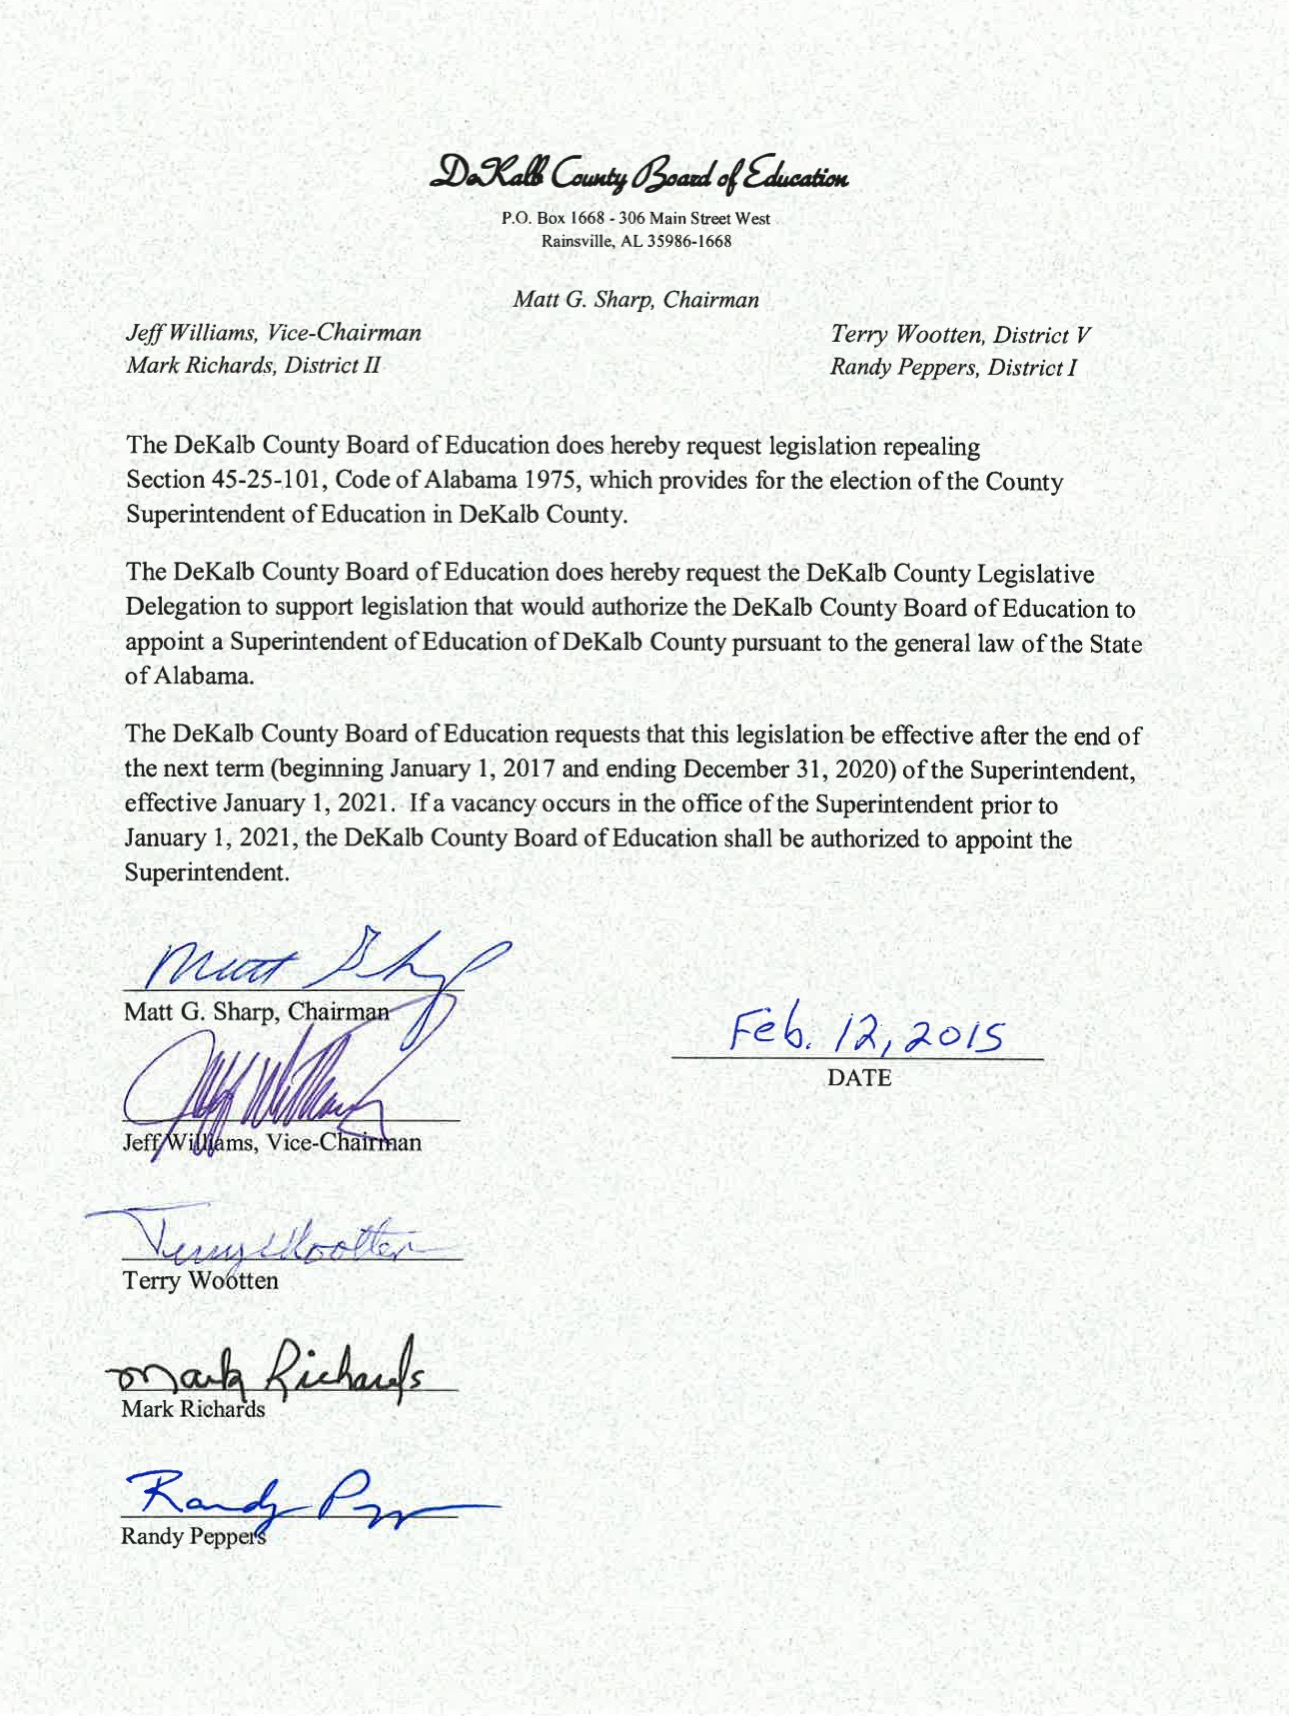 DeKalb County Board of Education
P.O. Box 1668 - 306 Main Street West
Rainsville, AL 35986-1668
Matt G. Sharp, Chairman
Jeff Williams, Vice-Chairman
Terry Wootten, District V
Mark Richards, District II
Randy Peppers, District I
The DeKalb County Board of Education does hereby request legislation repealing
Section 45-25-101, Code of Alabama 1975, which provides for the election of the County
Superintendent of Education in DeKalb County.
The DeKalb County Board of Education does hereby request the DeKalb County Legislative
Delegation to support legislation that would authorize the DeKalb County Board of Education to
appoint a Superintendent of Education of DeKalb County pursuant to the general law of the State
of Alabama.
The DeKalb County Board of Education requests that this legislation be effective after the end of
the next term (beginning January 1, 2017 and ending December 31, 2020) of the Superintendent,
effective January 1, 2021. If a vacancy occurs in the office of the Superintendent prior to
January 1, 2021, the DeKalb County Board of Education shall be authorized to appoint the
Superintendent.
Matt Sharp
Matt G. Sharp, Chairman
Feb. 12, 2015
DATE
Jeff Williams
Jeff Williams, Vice-Chairman
Terry Wootten
Terry Wootten
Mark Richards
Mark Richards
Randy Peppers
Randy Peppers